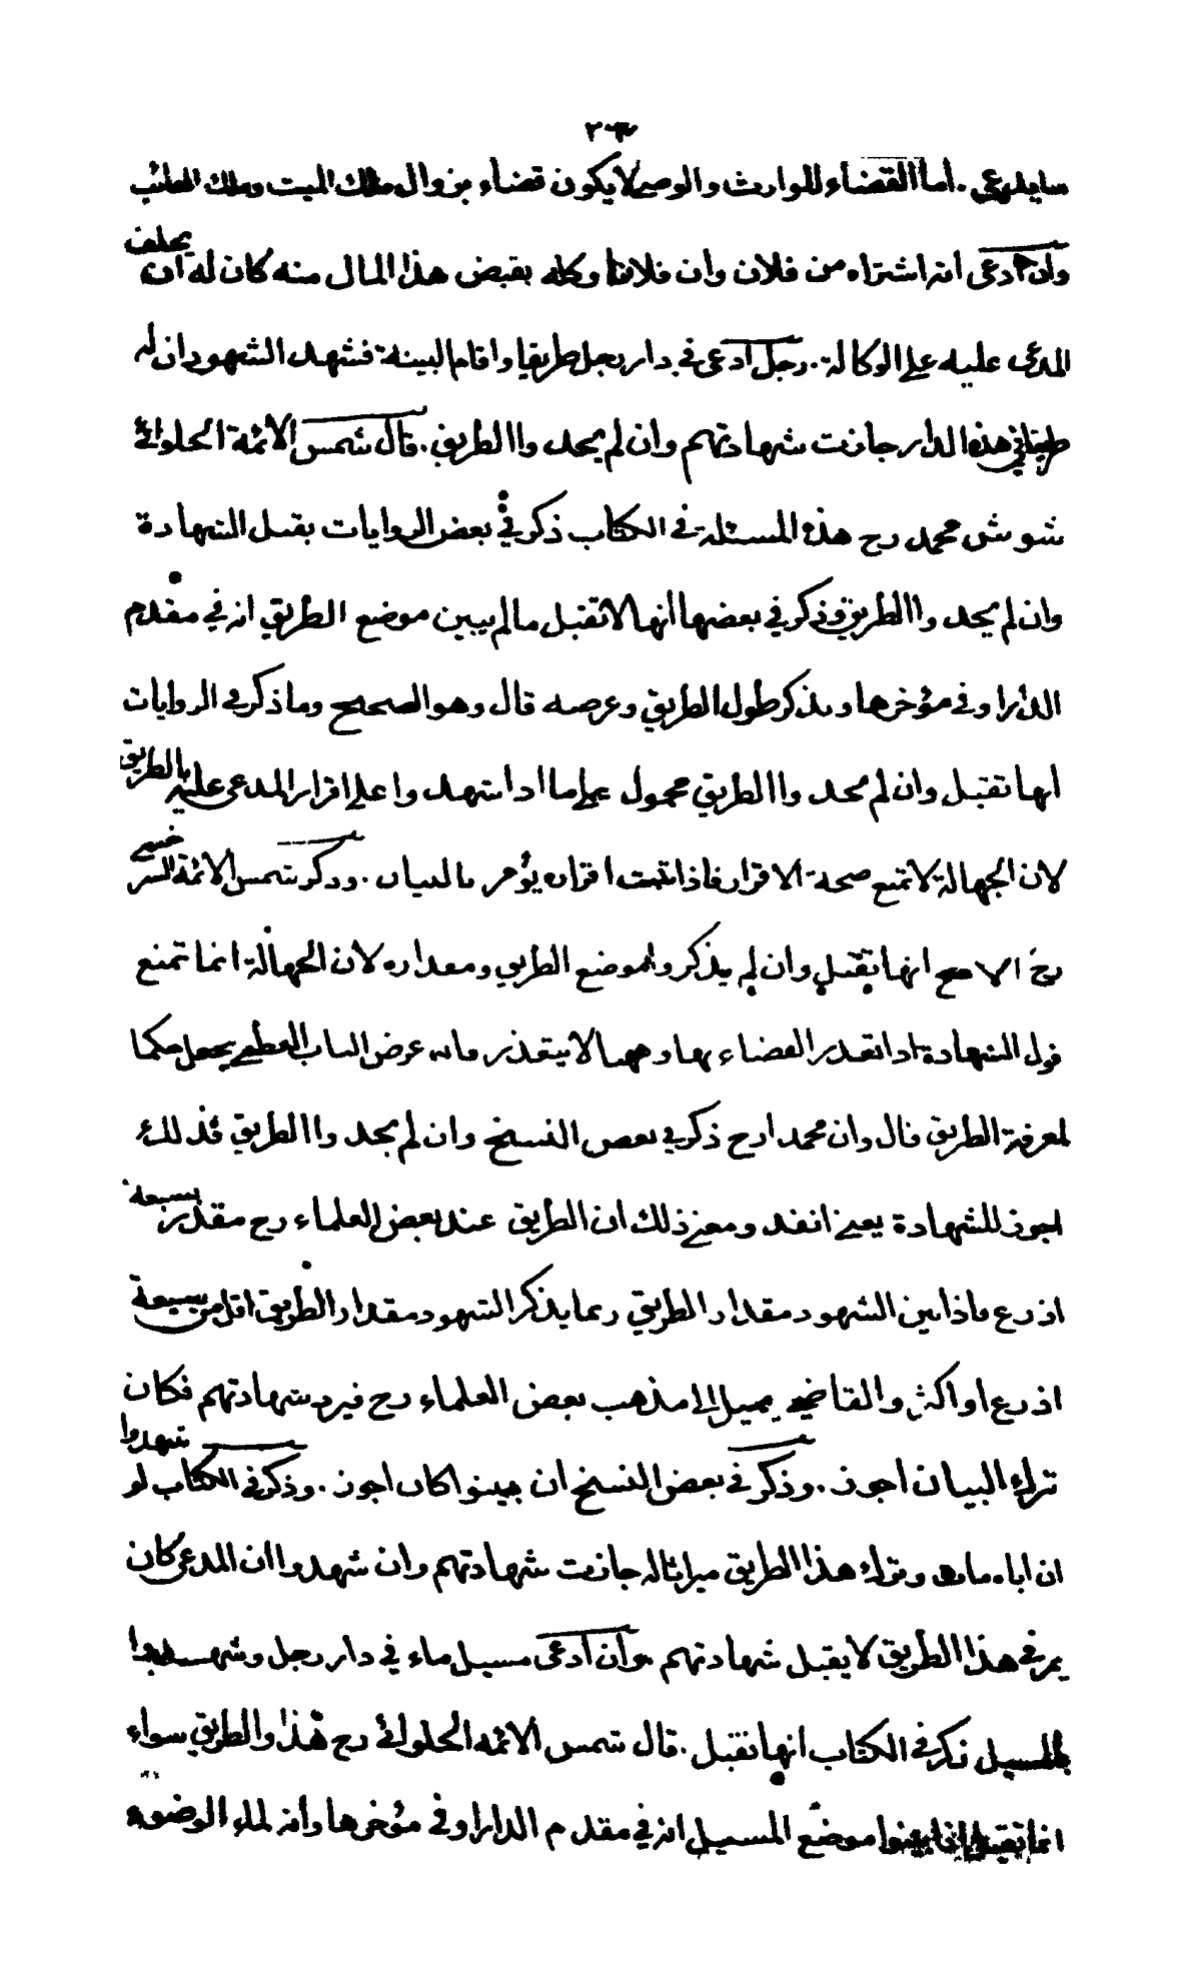 ما يدعى . اما القضاء للوارث والوصى لا يكون قضاء بزوال ملك الميت وملك الغائب
وان ادعى انه اشتراه من فلان وان فلانا وكله بقبض هذا المال منه كان له ان يحلف
المدعى عليه على الوكالة . رجل ادعى في دار رجل طريقا واقام البينة فشهد الشهود ان له
طريقا في هذه الدار جازت شهادتهم وان لم يحدوا الطريق . قال شمس الائمة الحلوائي
شوش محمد رح هذه المسئلة في الكتاب ذكر في بعض الروايات يقبل الشهادة
وان لم يحدوا الطريق وذكر في بعضها انها لا تقبل ما لم يبين موضع الطريق انه في مقدم
الدار او في مؤخرها ويذكر طول الطريق وعرضه قال وهو الصحيح وما ذكر في الروايات
انها تقبل وان لم يحدوا الطريق محمول على ما اذا شهدوا على اقرار المدعى عليه بالطريق
لان الجهالة لا تمنع صحة الاقرار فاذا ثبت اقراره يؤمر بالبيان . وذكر شمس الائمة السرخسي
رح الاصح انها تقبل وان لم يذكروا موضع الطريق ومقداره لان الجهالة انما تمنع
قبول الشهادة اذا تعذر القضاء بها وههنا لا يتعذر فانه عرض الباب العظمى يجعل حكما
لمعرفة الطريق قال وان محمدا رح ذكر في بعض النسخ وان لم يحدوا الطريق فذلك
اجوز للشهادة يعني انفذ ومعنى ذلك ان الطريق عند بعض العلماء رح مقدر بسبعة
اذرع فاذا بين الشهود مقدار الطريق ربما يذكر الشهود مقدار الطريق اقل من سبعة
اذرع او اكثر والقاضي يميل الى مذهب بعض العلماء رح فيرد شهادتهم فكان
ترك البيان اجوز . وذكر في بعض النسخ ان بينوا كان اجوز . وذكر في الكتاب لو شهدوا
ان اباه مات وترك هذا الطريق ميراثا له جازت شهادتهم وان شهدوا ان المدعى كان
يمر في هذا الطريق لا يقبل شهادتهم وان ادعى مسيل ماء في دار رجل وشهدوا
بالمسيل ذكر في الكتاب انها تقبل . قال شمس الائمة الحلوائي رح هذا والطريق سواء
انما تقبل اذا بينوا موضع المسيل انه في مقدم الدار او في مؤخرها وانه لماء الوضوء